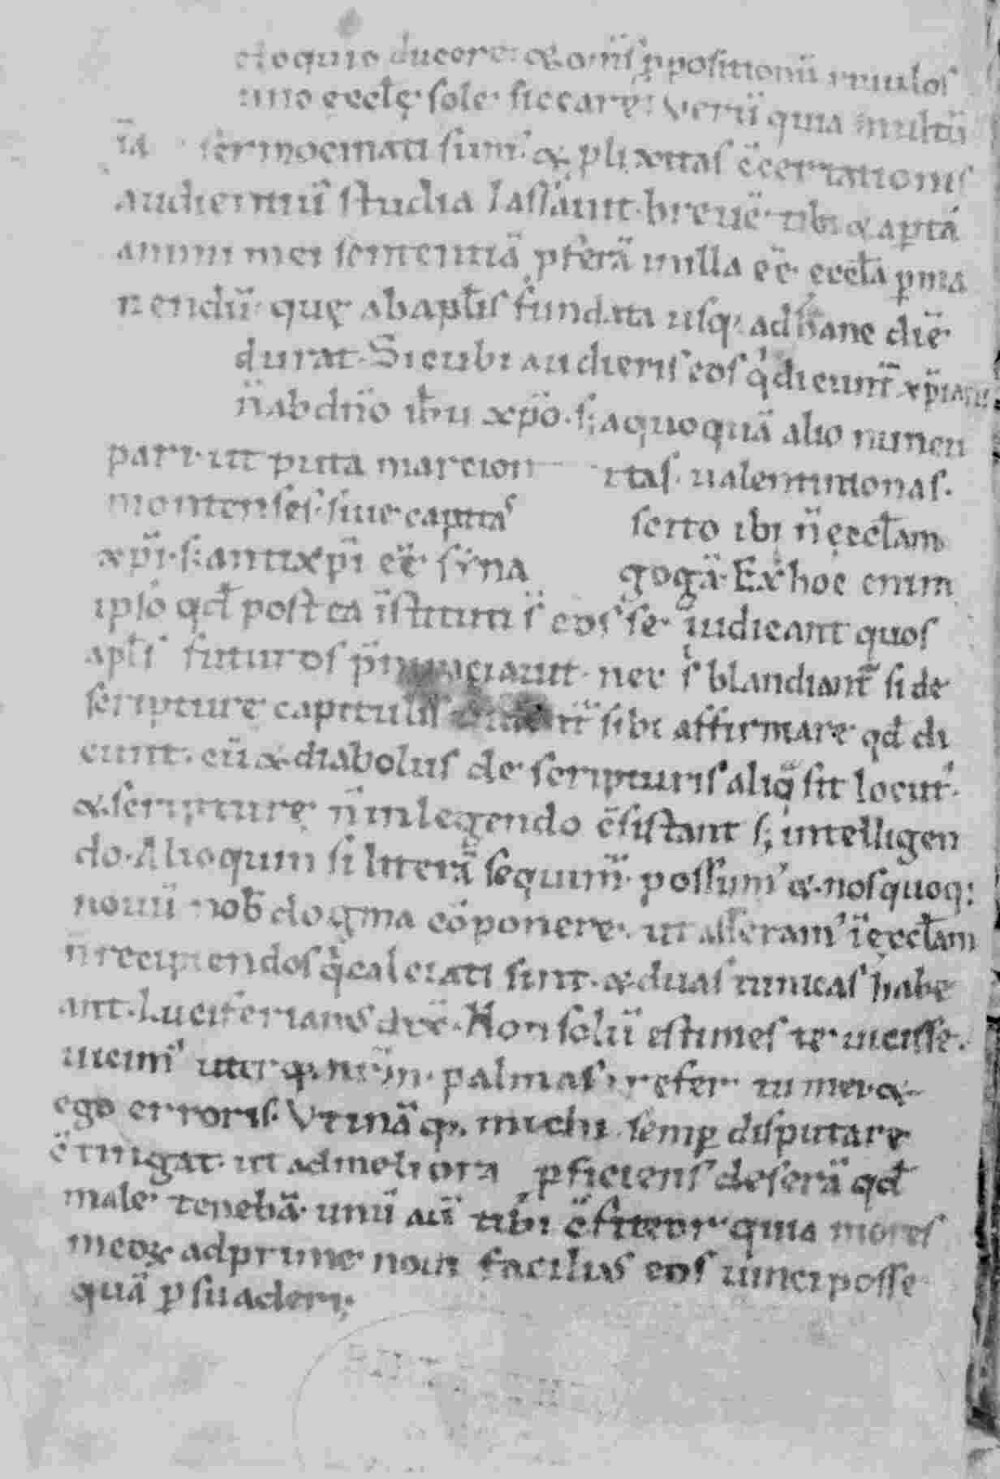 eloquio ducere· & om̅s ꝓpositionu̅ riuulos
uno eccl̅ę· sole· siccare· Veru̅ quia multu̅
ia̅ sermocinati sum᷒· & plixitas c̅certationis
audientiu̅ studia lassauit· breue̅· tibi & apta̅
animi mei sententia̅ ꝓfera̅ in illa ee̅· eccl̅a ꝑma
nendu̅· quę ab apl̅is fundata usq· ad hanc die̅·
durat· Sicubi audieris eos qͥ dicunt᷒ xp̅iani
n̅ ab dn̅o ih̅u xp̅o· s; a quoqua̅ alio nuncu
pari· ut puta marcion itas· ualentinionas·
montenses· siue capitas scito ibi n̅ eccl̅am
xp̅i· s; antixp̅i ee̅· syna goga̅· Ex hoc enim
ipso qd̅ postea i̅stituti s̅ eos se iudicant quos
apl̅i futuros p̅nunciaunt· nec s̅ blandiant᷒ si de
scripture capitulis sibi affirmare qd̅ di
cunt· cu̅ & diabolus de scripturis aliqͣ sit locut᷒·
& scripturę n̅ in legendo c̅sistant s; intelligen
do· Alioquin si litera̅ sequim᷒· possum᷒ & nos quoq;
nouu̅ nob̅ dogma co̅ponere· ut asseram᷒ i̅ eccl̅am
n̅ recipiendos qͥ calciati sint· & duas tunicas habe
ant· Luciferianus dix̅· Non solu̅ estimes te uicisse·
uicim᷒ uterq· nr̅m· palmas refer tu mei &
ego erroris· Vtina̅ q· michi semꝑ disputare
c̅tingat· ut ad meliora ꝓficiens desera̅ qd̅
male teneba̅· unu̅ au̅ tibi c̅fiteor quia mores
meoꝝ adprime noui facilius eos uinci posse
qua̅ ꝑsuaderi;